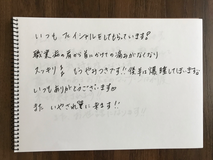 いつも フェイシャルをしてもらっています♪
職業柄の肩から首にかけての痛みがなくなり
スッキリ!! もうやみつきです!! 後すに爆睡してしまいます。
いつもありがとうございます
また いやされに来ます!!